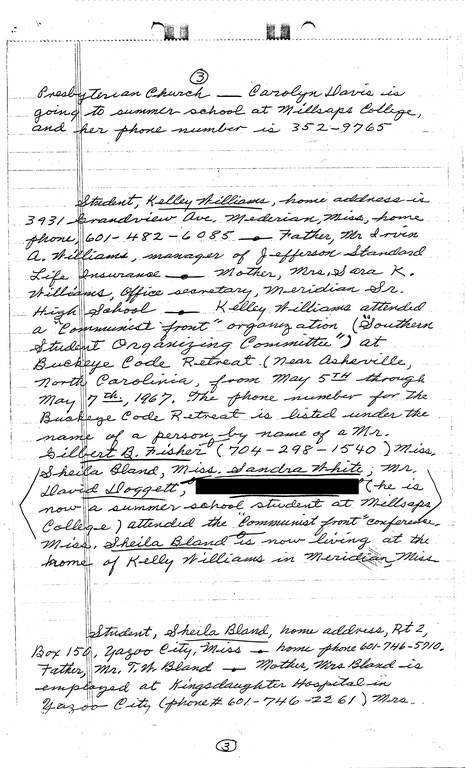 ③
Presbyterian Church — Carolyn Davis is
going to summer school at Millsaps College,
and her phone number is 352-9765
Student, Kelley Williams, home address is
3931 Grandview Ave. Mederian, Miss, home
phone, 601-482-6085 — Father, Mr Irvin
A. Williams, manager of Jefferson Standard
Life Insurance — Mother, Mrs. Sara K.
Williams, Office secretary, Meridian Sr.
High School — Kelley Williams attended
a "Communist front" organization ("Southern
Student Organizing Committee") at
Buckeye Code Retreat (Near Asheville,
North Carolinia, from May 5TH through
May 7th, 1967. The phone number for the
Buckeye Code Retreat is listed under the
name of a person, by name of a Mr.
Gilbert B. Fisher (704-298-1540) Miss.
Sheila Bland, Miss. Sandra White, Mr.
David Doggett, (he is
now a summer school student at Millsaps
College) attended the "Communist front" conference.
Miss. Sheila Bland is now living at the
home of Kelly Williams in Meridian, Miss.
Student, Sheila Bland, home address, Rt 2,
Box 150, Yazoo City, Miss — home phone 601-746-5710.
Father, Mr. T. W. Bland — Mother, Mrs Bland is
employed at Kingsdaughter Hospital in
Yazoo City (phone # 601-746-2261) Mrs.
③